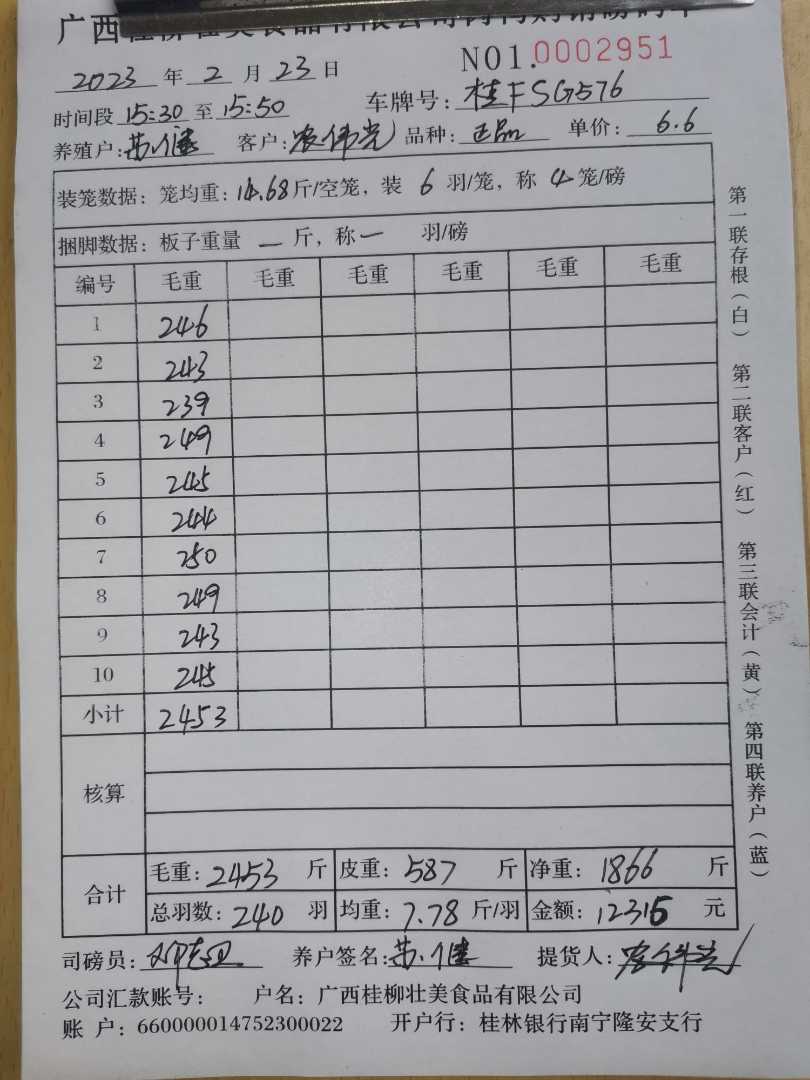 NO1.0002951
2023 年 2 月 23 日
时间段 15:30 至 15:50 车牌号: 桂FSG576
养殖户: 客户: 农伟光 品种: 正品 单价: 6.6
装笼数据: 笼均重: 14.68 斤/空笼, 装 6 羽/笼, 称 4 笼/磅
捆脚数据: 板子重量 一 斤, 称 一 羽/磅
编号 毛重 毛重 毛重 毛重 毛重 毛重
1 246
2 243
3 239
4 249
5 245
6 244
7 250
8 249
9 243
10 245
小计 2453
核算
合计 毛重: 2453 斤 皮重: 587 斤 净重: 1866 斤
总羽数: 240 羽 均重: 7.78 斤/羽 金额: 12315 元
司磅员: 养户签名: 提货人: 农伟光
公司汇款账号: 户名: 广西桂柳壮美食品有限公司
账 户: 660000014752300022 开户行: 桂林银行南宁隆安支行
第一联存根(白) 第二联客户(红) 第三联会计(黄) 第四联养户(蓝)